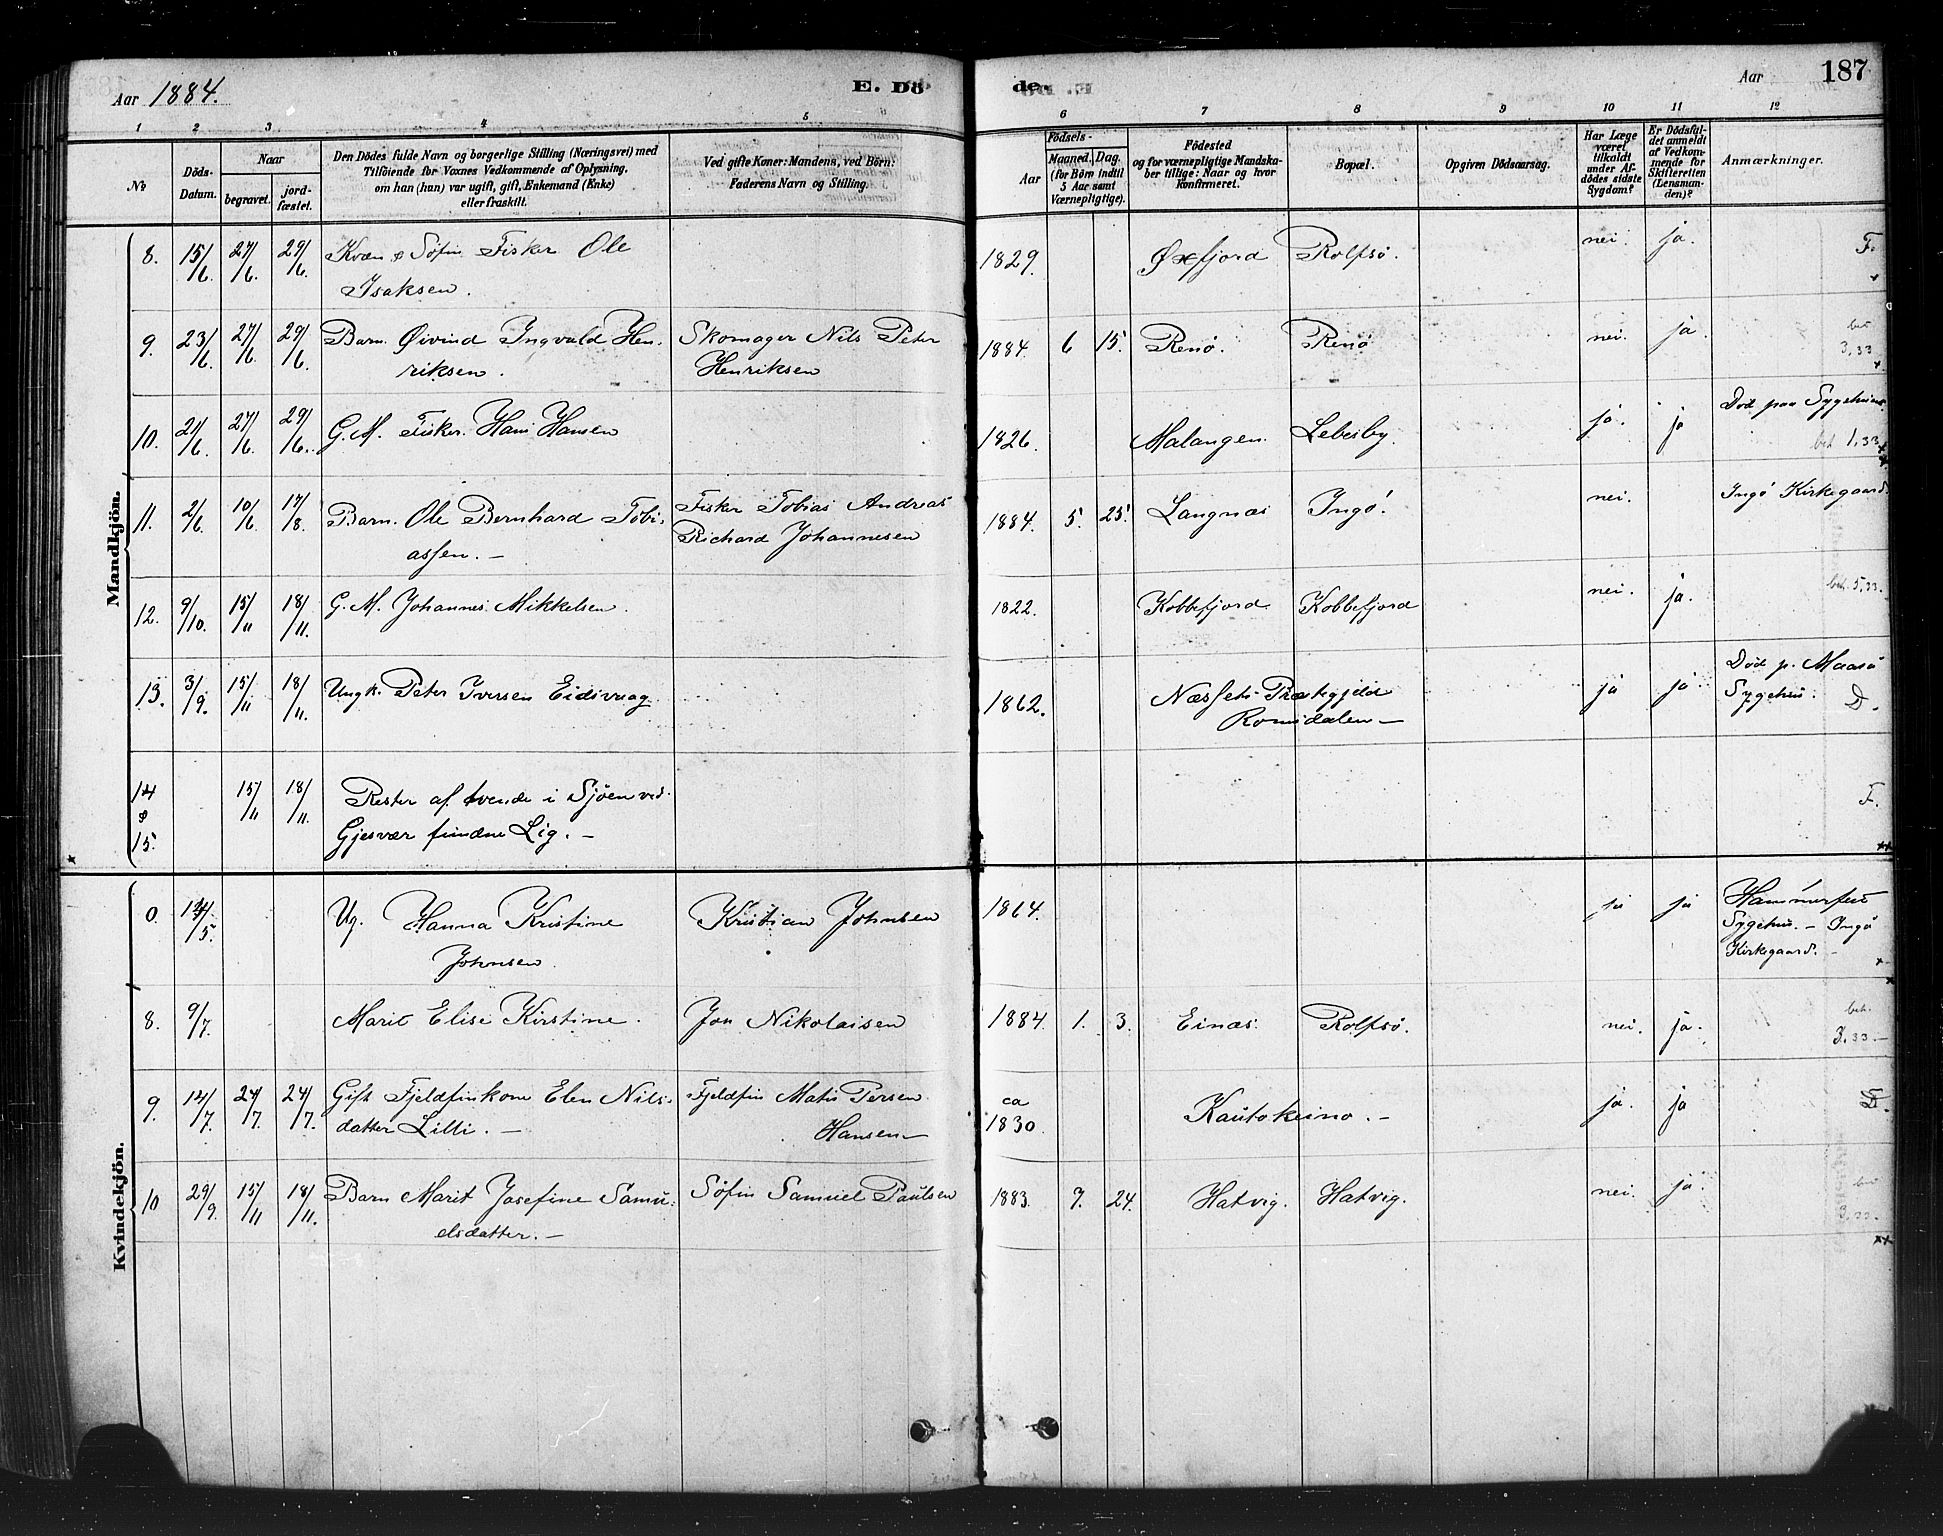 Aar 1884.
E. Dö
de.
Aar
187
1 2 3 4 5 6 7 8 9 10 11 12
No
Döds-
Datum.
Naar
begravet.
jord-
fæstet.
Den Dödes fulde Navn og borgerlige Stilling (Næringsvei) med
Tilföiende for Voxnes Vedkommende af Oplysning,
om han (hun) var ugift, gift, Enkemand (Enke)
eller fraskilt.
Ved gifte Koner: Mandens, ved Börn:
Faderens Navn og Stilling.
Födsels-
Aar
Maaned. Dag.
(for Börn indtil
5 Aar samt
Værnepligtige).
Födested
og for værnepligtige Mandska-
ber tillige: Naar og hvor
konfirmeret.
Bopæl.
Opgiven Dödsaarsag.
Har Læge
været
tilkaldt
under Af-
dödes sidste
Sygdom?
Er Dödsfal-
det anmeldt
af Vedkom-
mende for
Skifteretten
(Lensman-
den)?
Anmærkninger.
Mandkjön.
8. 15/6 27/6. 29/6. Kvæn & Søfin Fisker Ole 1829. Øxfjord Rolfsö. nei. ja. F.
Isaksen.
9. 23/6. 27/6. 29/6. Barn. Øivind Ingvald Hen- Skomager Nils Peter 1884. 6 15. Renö. Renö nei. ja. bet 3,33
riksen. Henriksen
10. 21/6. 27/6. 29/6. G. M. Fisker. Hans Hansen 1826. Malangen. Lebesby. ja. ja Död paa Sygehuus.
bet 1,33
11. 2/6. 10/6. 17/8. Barn. Ole Bernhard Tobi- Fisker Tobias Andreas 1884. 5. 25. Langnæs Ingö. nei. Ingö Kirkegaard.
assen. — Richard Johannesen
12. 9/10. 15/11 18/11. G. M. Johannes Mikkelsen. 1822. Kobbefjord Kobbefjord nei. ja. bet. 5,33.
13. 3/9. 15/11 18/11. Ungk. Peter Iversen Eidsvaag. 1862. Næssets Præstegjeld ja ja Död p. Maasö
Romsdalen — Sygehus. D.
14 & 15. 15/11 18/11. Rester af tvende i Sjöen ved F.
Gjesvær fundne Lig. —
Kvindekjön.
0. 14/5. Ug. Hanna Kristine Kristian Johnsen 1864. ja ja Hammerfest
Johnsen. Sygehus. — Ingö
Kirkegaard. —
8. 9/7. Marit Elise Kirstine. Jon Nikolaisen 1884. 1. 3. Einæs. Rolfsö. nei. ja. bet.
3,33 —
9. 14/7. 24/7. 24/7. Gift Fjeldfinkone Elen Nils- Fjeldfin Matis Persen ca 1830. Kautokeino. — ja. ja D.
datter Lilli. — Hansen —
10 29/9. 15/11 18/11. Barn Marit Josefine Samu- Söfin Samuel Paulsen 1883. 7. 24. Hatvig. Hatvig. nei. ja. bet
3,33.
elsdatter. —